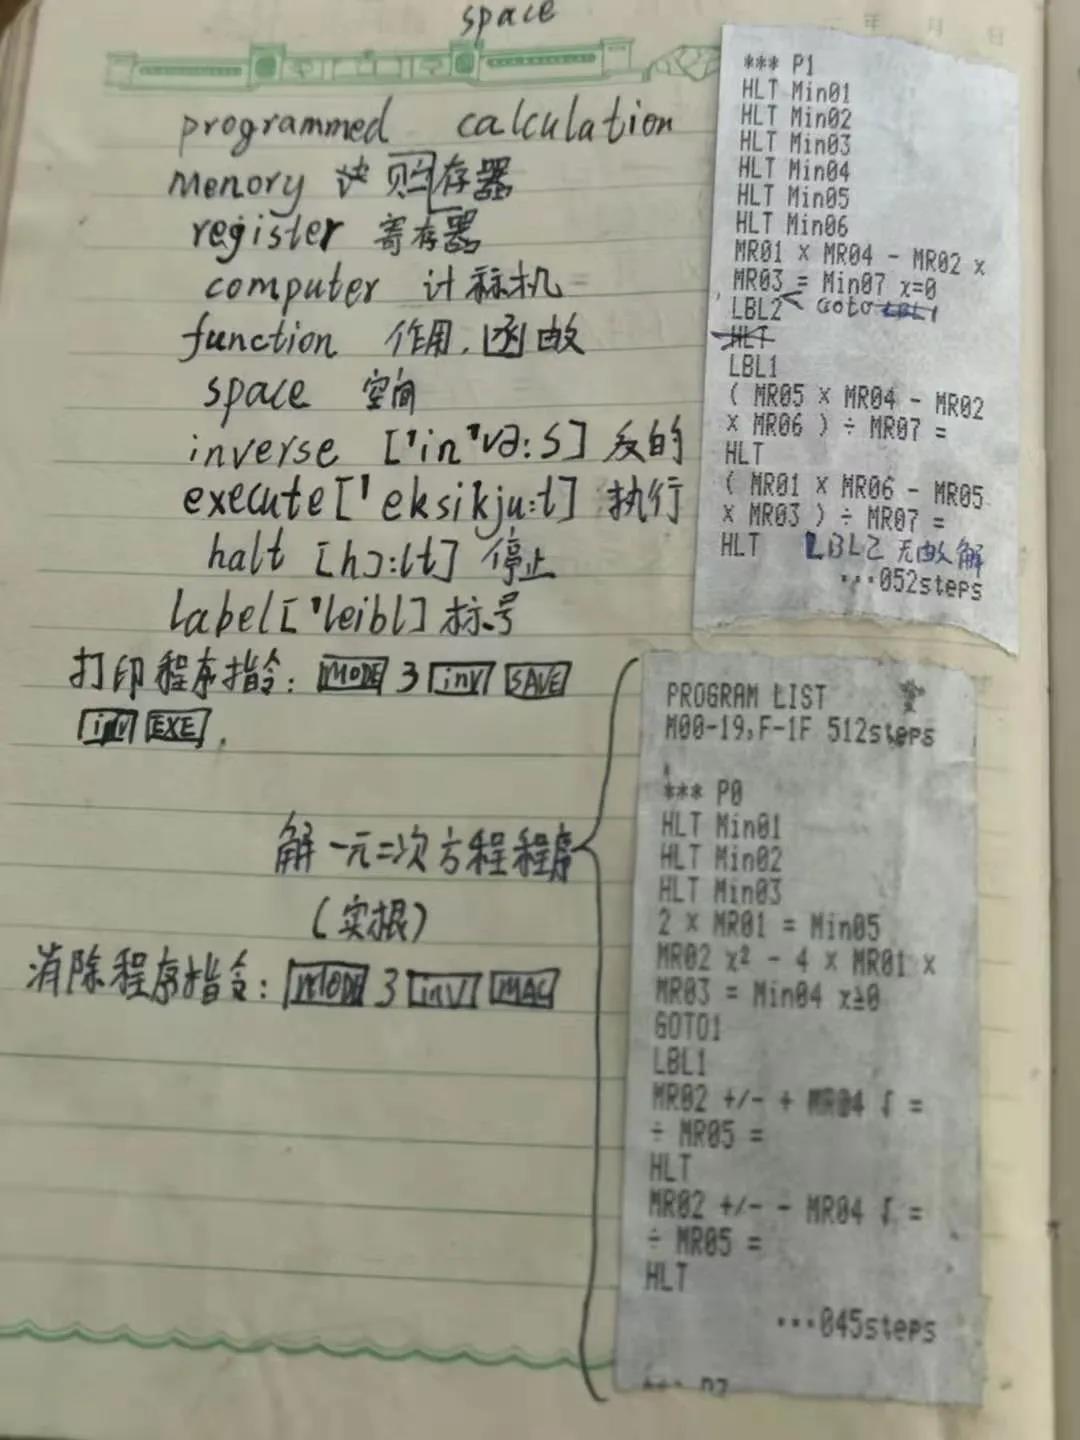 space
年 月 日
programmed calculation
Menory 贮存器
register 寄存器
computer 计祘机
function 作用.函数
space 空间
inverse ['in'və:s] 反的
execute ['eksikju:t] 执行
halt [hɔ:lt] 停止
label ['leibl] 标号
打印程序指令: MODE 3 inV SAVE
inV EXE.
解一元二次方程程序
(实根)
消除程序指令: MODE 3 inV MAC
*** P1
HLT Min01
HLT Min02
HLT Min03
HLT Min04
HLT Min05
HLT Min06
MR01 × MR04 - MR02 ×
MR03 = Min07 x=0
LBL2 < Goto LBL1
HLT
LBL1
( MR05 × MR04 - MR02
× MR06 ) ÷ MR07 =
HLT
( MR01 × MR06 - MR05
× MR03 ) ÷ MR07 =
HLT LBL2 无数解
···052steps
PROGRAM LIST
M00-19,F-1F 512steps
*** P0
HLT Min01
HLT Min02
HLT Min03
2 × MR01 = Min05
MR02 x² - 4 × MR01 ×
MR03 = Min04 x≧0
GOTO1
LBL1
MR02 +/- + MR04 √ =
÷ MR05 =
HLT
MR02 +/- - MR04 √ =
÷ MR05 =
HLT
···045steps